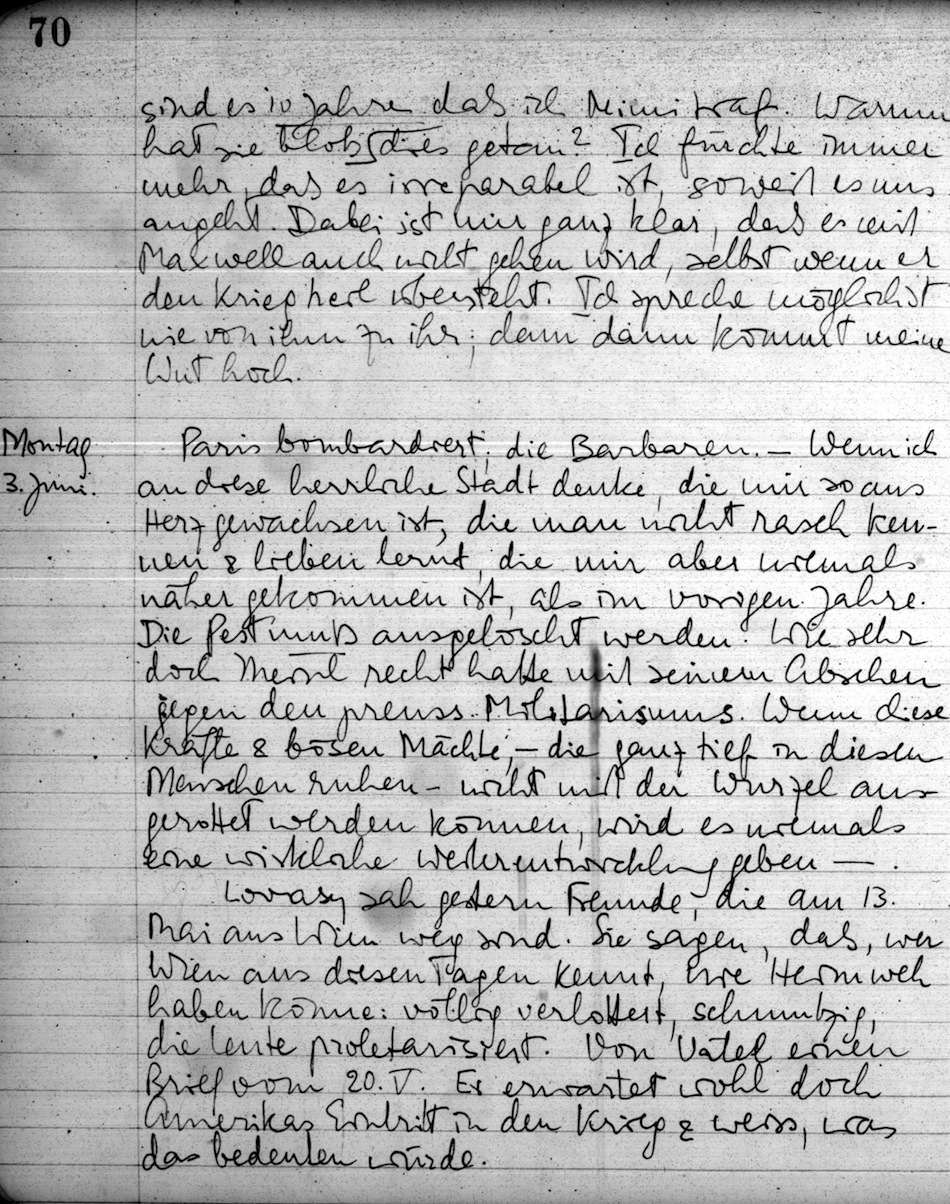 70
sind es 10 Jahre dass ich Mimi traf. Warum
hat sie bloss dies getan? Ich fürchte immer
mehr, dass es irreparabel ist, soweit es uns
angeht. Dabei ist mir ganz klar, dass es mit
Maxwell auch nicht gehen wird, selbst wenn er
den Krieg heil übersteht. Ich spreche möglichst
nie von ihm zu ihr; denn dann kommt meine
Wut hoch.
Montag
3. Juni.
Paris bombardiert; die Barbaren. — Wenn ich
an diese herrliche Stadt denke, die mir so ans
Herz gewachsen ist, die man nicht rasch ken-
nen & lieben lernt, die mir aber niemals
näher gekommen ist, als im vorigen Jahre.
Die Pest muss ausgelöscht werden. Wie sehr
doch recht hatte mit seinem Abscheu
gegen den preuss. Militarismus. Wenn diese
Kräfte & bösen Mächte, — die ganz tief in diesen
Menschen ruhen — nicht mit der Wurzel aus-
gerottet werden können, wird es niemals
eine wirkliche Weiterentwicklung geben — .
Lovasy sah gestern Freunde, die am 13.
Mai aus Wien weg sind. Sie sagen, dass, wer
Wien aus diesen Tagen kennt, nie Heimweh
haben könne: völlig verlottert, schmutzig,
die Leute proletarisiert. Von Vater einen
Brief vom 20. V. Er erwartet wohl doch
Amerikas Eintritt in den Krieg & weiss, was
das bedeuten würde.